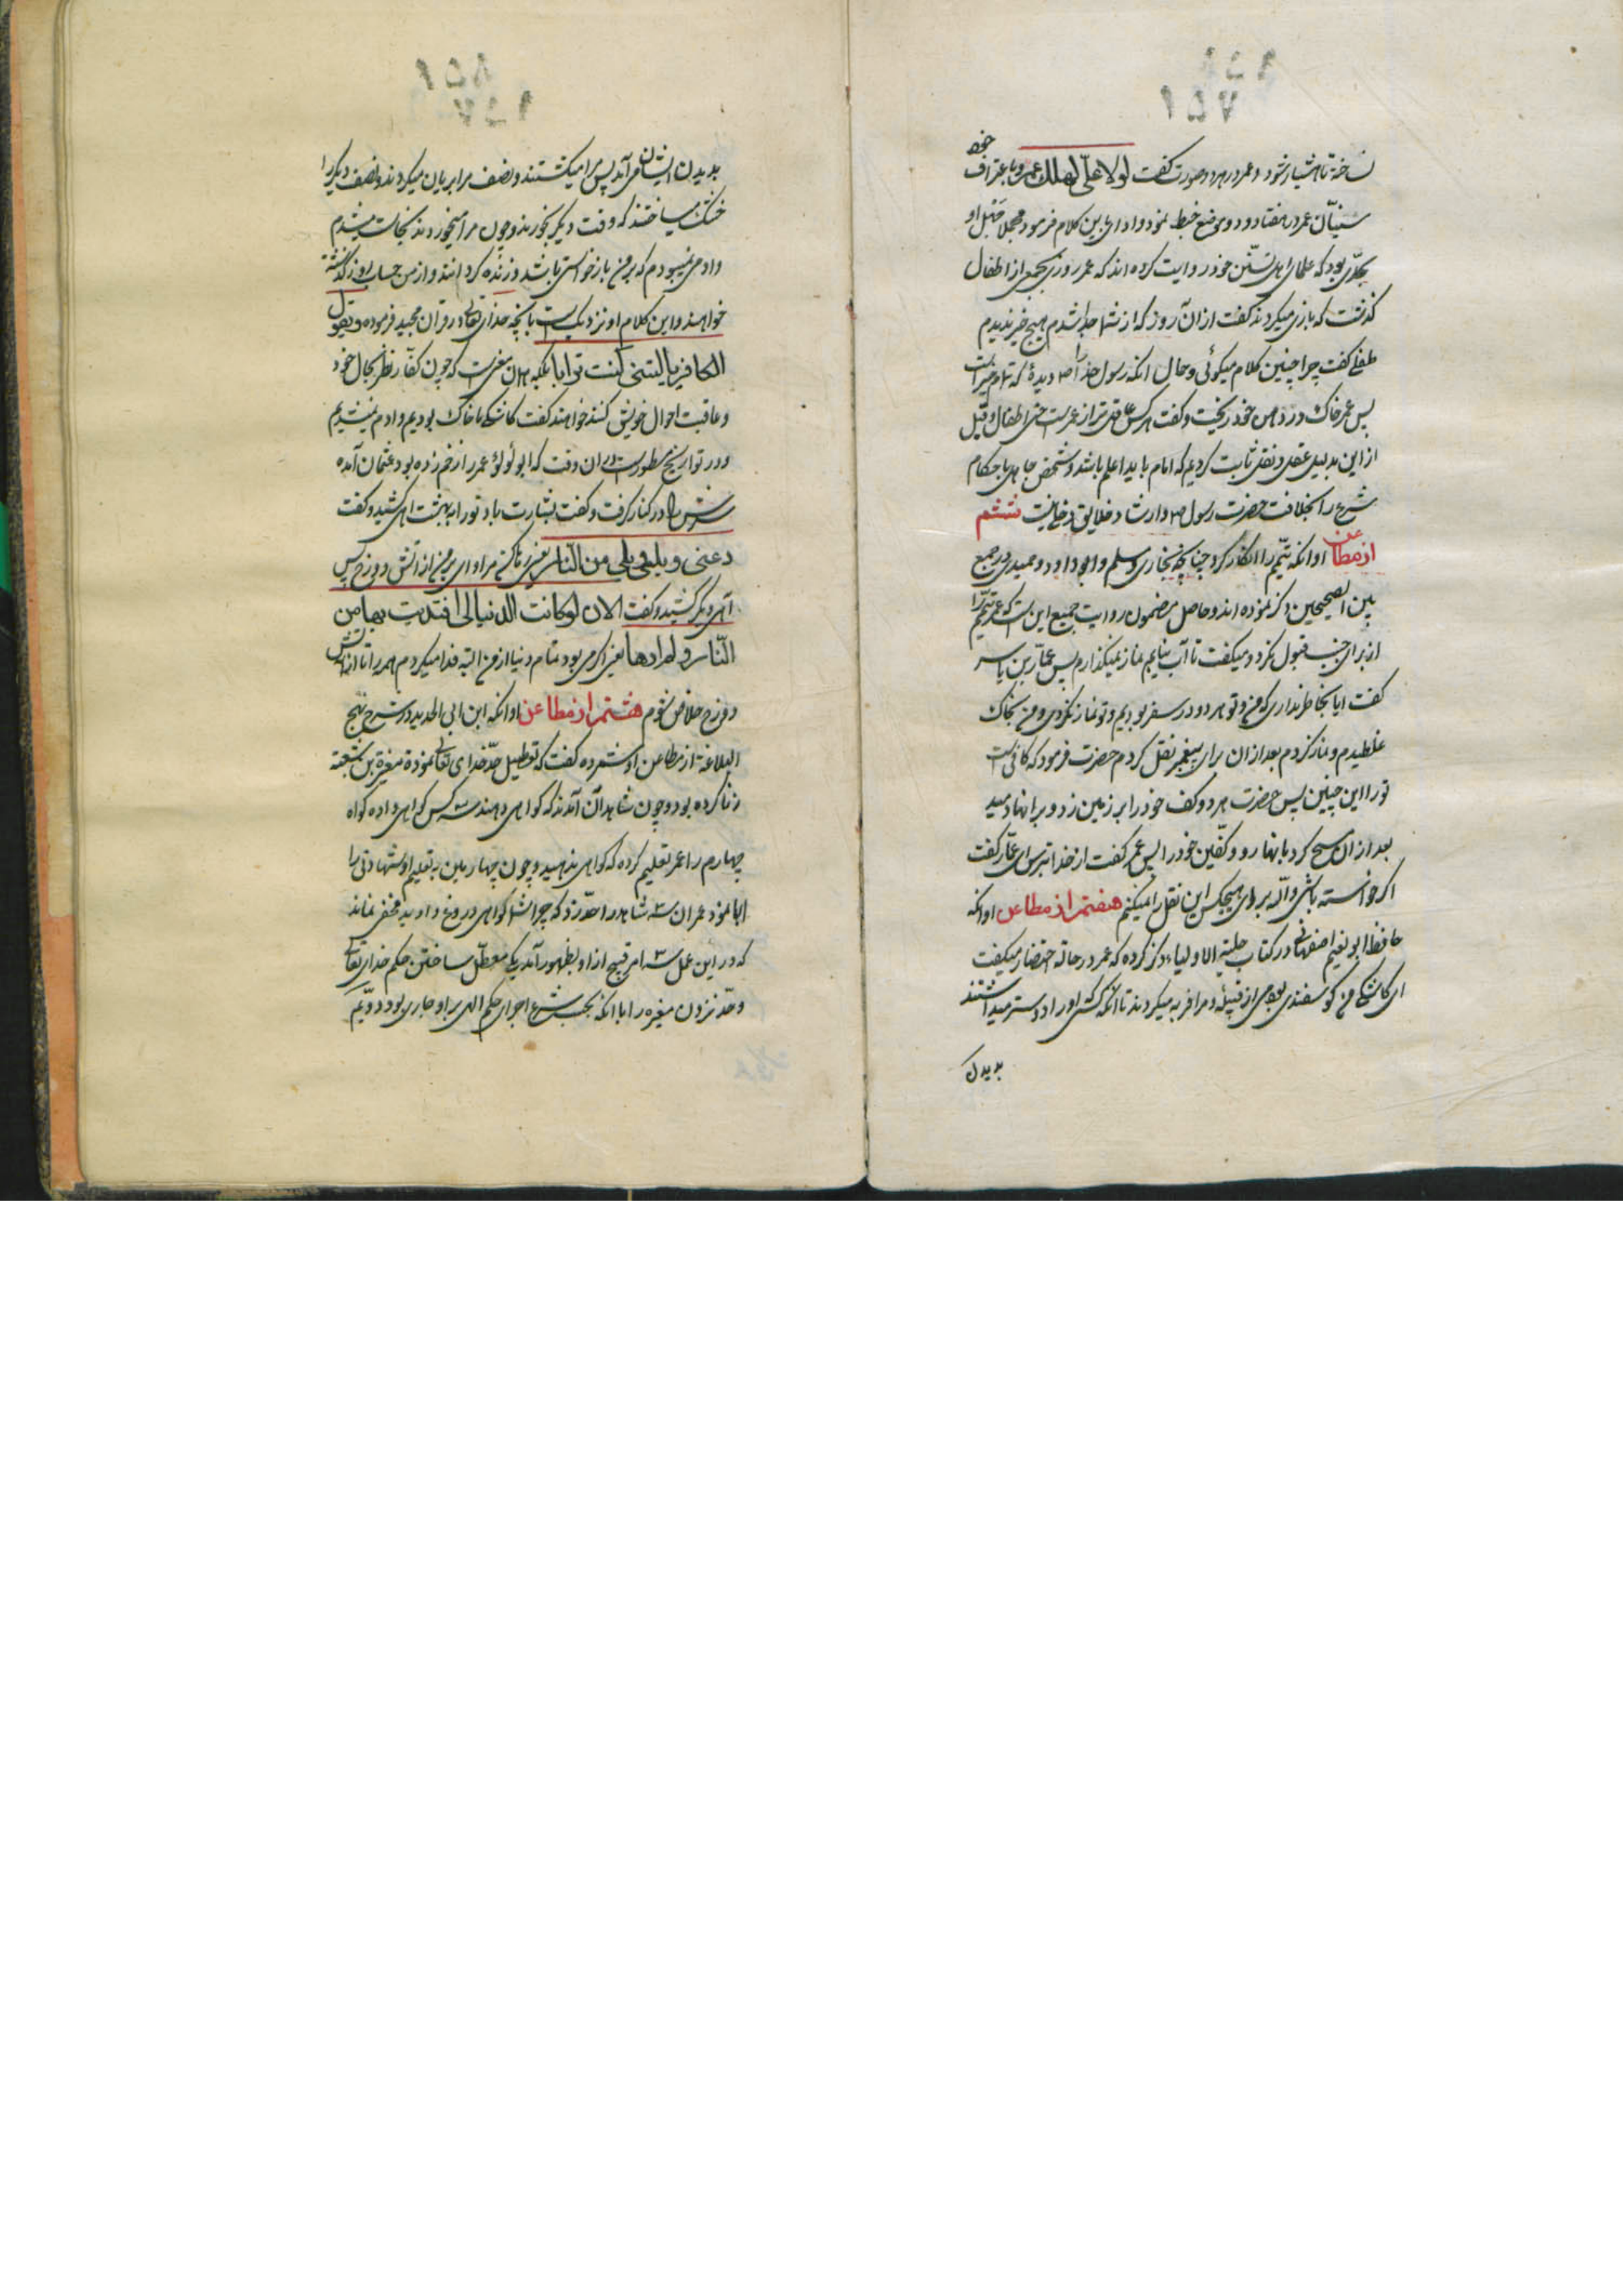 نساخته تا هشیار شود و عمر در هر دو صورت گفت لولا علی لهلك عمر و باعتراف
سنیان عمر در هفتاد و دو موضع خبط نمود و ادای این کلام فرمود مجملا جهل او
بحدی بود که علمای اهل تسنن خود روایت کرده اند که عمر روزی بجمعی از اطفال
گذشت که بازی میکردند گفت از آن روز که از شما جدا شدم هیچ خیر ندیدم
طفلی گفت چرا چنین کلام میگوئی و حال انکه رسول خدا را ص دیدۀ که تمام خیر است
پس عمر خاک در دهن خود ریخت و گفت هر کس عاقل تر از عمر است حتی اطفال و قبل
از این بدلیل عقلی و نقلی ثابت کردیم که امام باید اعلم باشد و شخص جاهل باحکام
شرع را بخلافت حضرت رسول ص و ارشاد خلایق دخلی نیست ششم
از مطاعن او انکه تیمم را انکار کرد چنانچه بخاری و مسلم و ابو داود و حمیدی در جمع
بین الصحیحین ذکر نموده اند و حاصل مضمون روایت جمیع این است که عمر تیمم را
از برای جنب قبول نکرد و میگفت تا آب نیابم نماز نمیگذارم پس عمار بن یاسر
گفت ایا بخاطر نداری که من و تو هر دو در سفر بودیم و تو نماز نکردی و من بخاک
غلطیدم و نماز کردم بعد از ان برای پیغمبر نقل کردم حضرت فرمود که کافی است
تو را این چنین پس حضرت هر دو کف خود را بر زمین زد و بر انها دمید
بعد از ان مسح کرد بانها رو و کفین خود را پس عمر گفت از خدا بترس ای عمار گفت
اگر خواسته باشی والله برای هیچکس این نقل را نمیکنم هفتم از مطاعن او انکه
حافظ ابو نعیم اصفهانی در کتاب حلیة الاولیاء ذکر کرده که عمر در حالة احتضار میگفت
ای کاشکی من گوسفندی بودمی از قبیله و مرا فربه میکردند تا آنکه کسی که او را دوستر میداشتند
بدیدن
بدیدن ایشان می آمد پس مرا میکشتند و نصف مرا بریان میکردند و نصف دیگر را
خشک میساختند که وقت دیگر بخورند و چون مرا میخوردند نجاست میشدم
و ادمی نمیبودم که بر من بازخواستی باشد و زنده کردانند و از من حساب روز گذشته
خواهند و این کلام او نزدیک است بانچه خدای تعالی در قران مجید فرموده و یقول
الكافر يا ليتني كنت ترابا بلکه همان معنی است که چون کفار نظر بحال خود
و عاقبت احوال خویش کنند خواهند گفت کاشکی ما خاک بودیم و ادم نمیشدیم
و در تواریخ مسطور است در ان وقت که ابو لؤلؤ عمر را زخم زده بود عثمان آمده
سرش را در کنار گرفت و گفت بشارت باد تو را به بهشت اهی کشید و گفت
دعني ويلي ويلي من النار یعنی رها کن مرا وای بر من از آتش دوزخ پس
آهی دیگر کشید و گفت الان لو كانت الدنيا لي افتديت بها من
النار و لم ارها یعنی اگر می بود تمام دنیا از من البته فدا میکردم همه را تا از آتش
دوزخ خلاص شوم هشتم از مطاعن او انکه ابن ابی الحدید در شرح نهج
البلاغة از مطاعن او شمرده گفت که تعطیل حد خدای تعالی نموده مغیرة بن شعبه
زنا کرده بود و چون شاهدان آمدند که گواهی دهند سه کس گواهی داده گواه
چهارم را عمر تعلیم کرده که گواهی ندهید و چون چهارمین به تعلیم او شهادتی را
ابا نمود عمر ان سه شاهد را حد زد که چرا شما گواهی دروغ دادید مخفی نماند
که در این عمل سه امر قبیح از او بظهور آمد یکی معطل ساختن حکم خدای تعالی
و حد نزدن مغیره را با انکه بحسب شرع اجرای حکم الهی بر او جاری بود دویم